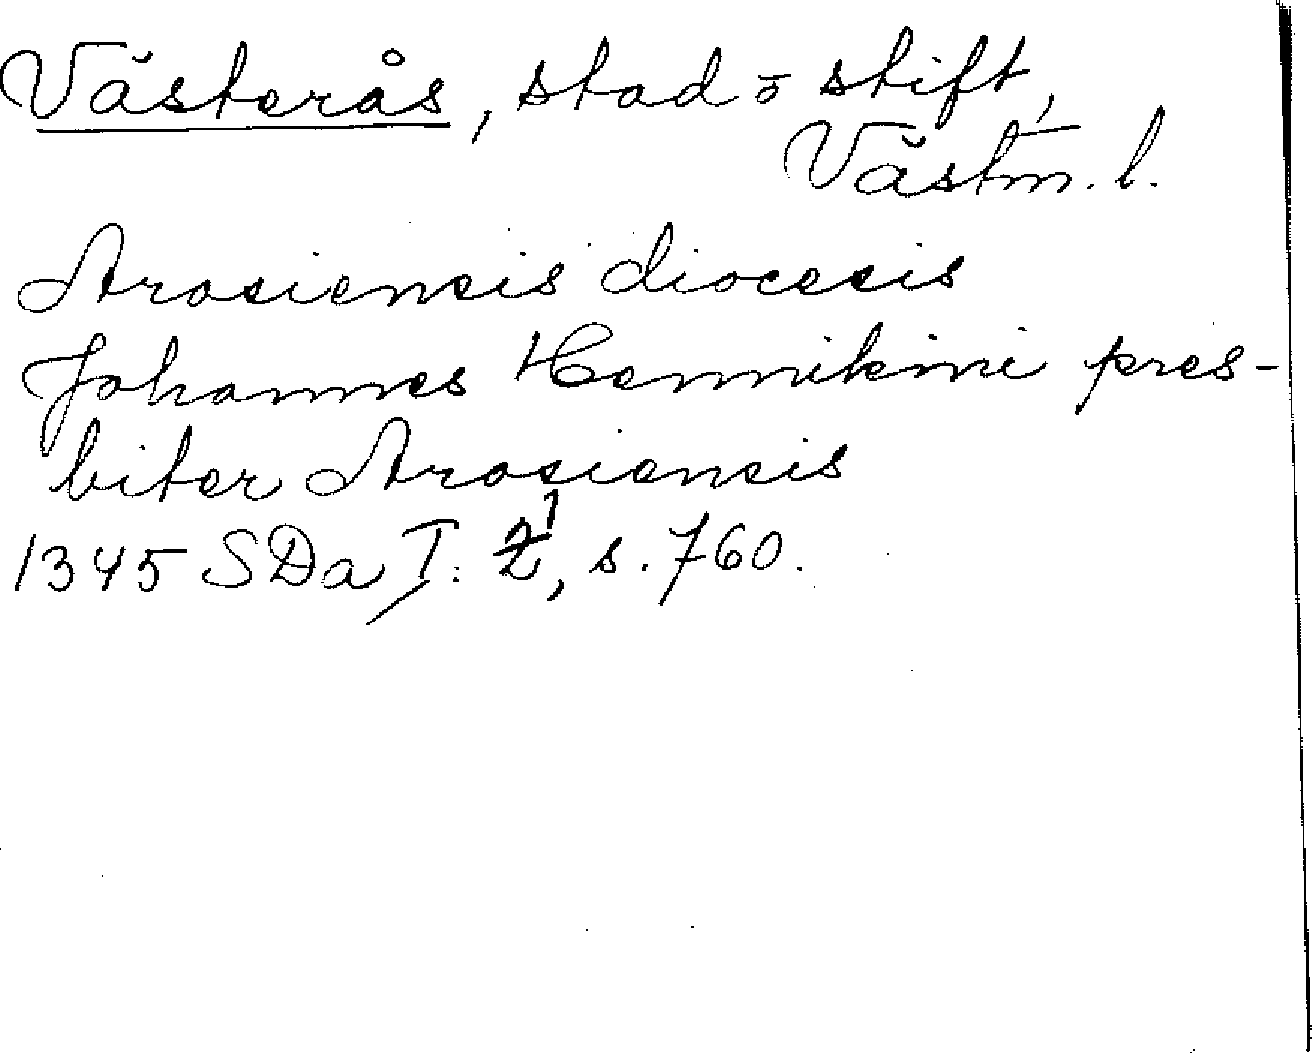 Västerås, stad ō stift,
Västm. l.
Arosiensis diocesis
Johannes Hennikini pres-
biter Arosiensis
1345 SDa I: 1, s. 760.